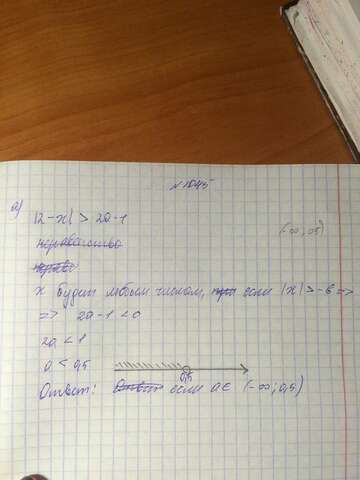 № 1045
а) |2-x| > 2a-1
неравенство
(-∞; 0,5)
x будет любым числом, при если |x| > -б =>
=> 2a-1 < 0
2a < 1
a < 0,5
0,5
Ответ: если a ∈ (-∞; 0,5)